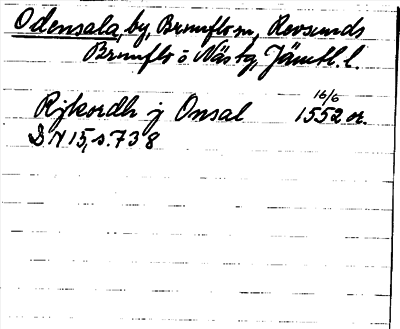 Odensala, by, Brunflo sn, Revsunds
Brunflo o Näs tg, Jämtl. l.
16/6
Rijkordh j Onsal 1552 or.
DN 15, s. 738